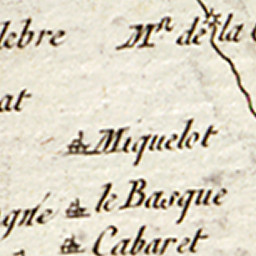 lebre Mn de la
at
Miquelot
agné le Basque
Cabaret